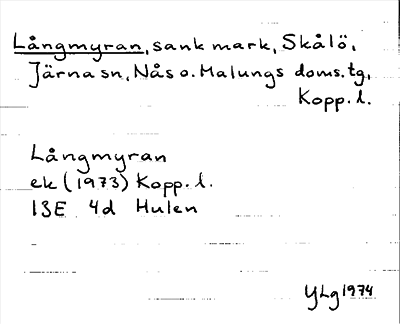 Långmyran, sank mark, Skålö,
Järna sn, Nås o. Malungs doms.tg,
Kopp. l.
Långmyran
ek (1973) Kopp. l.
13E 4d Hulen
YLg 1974